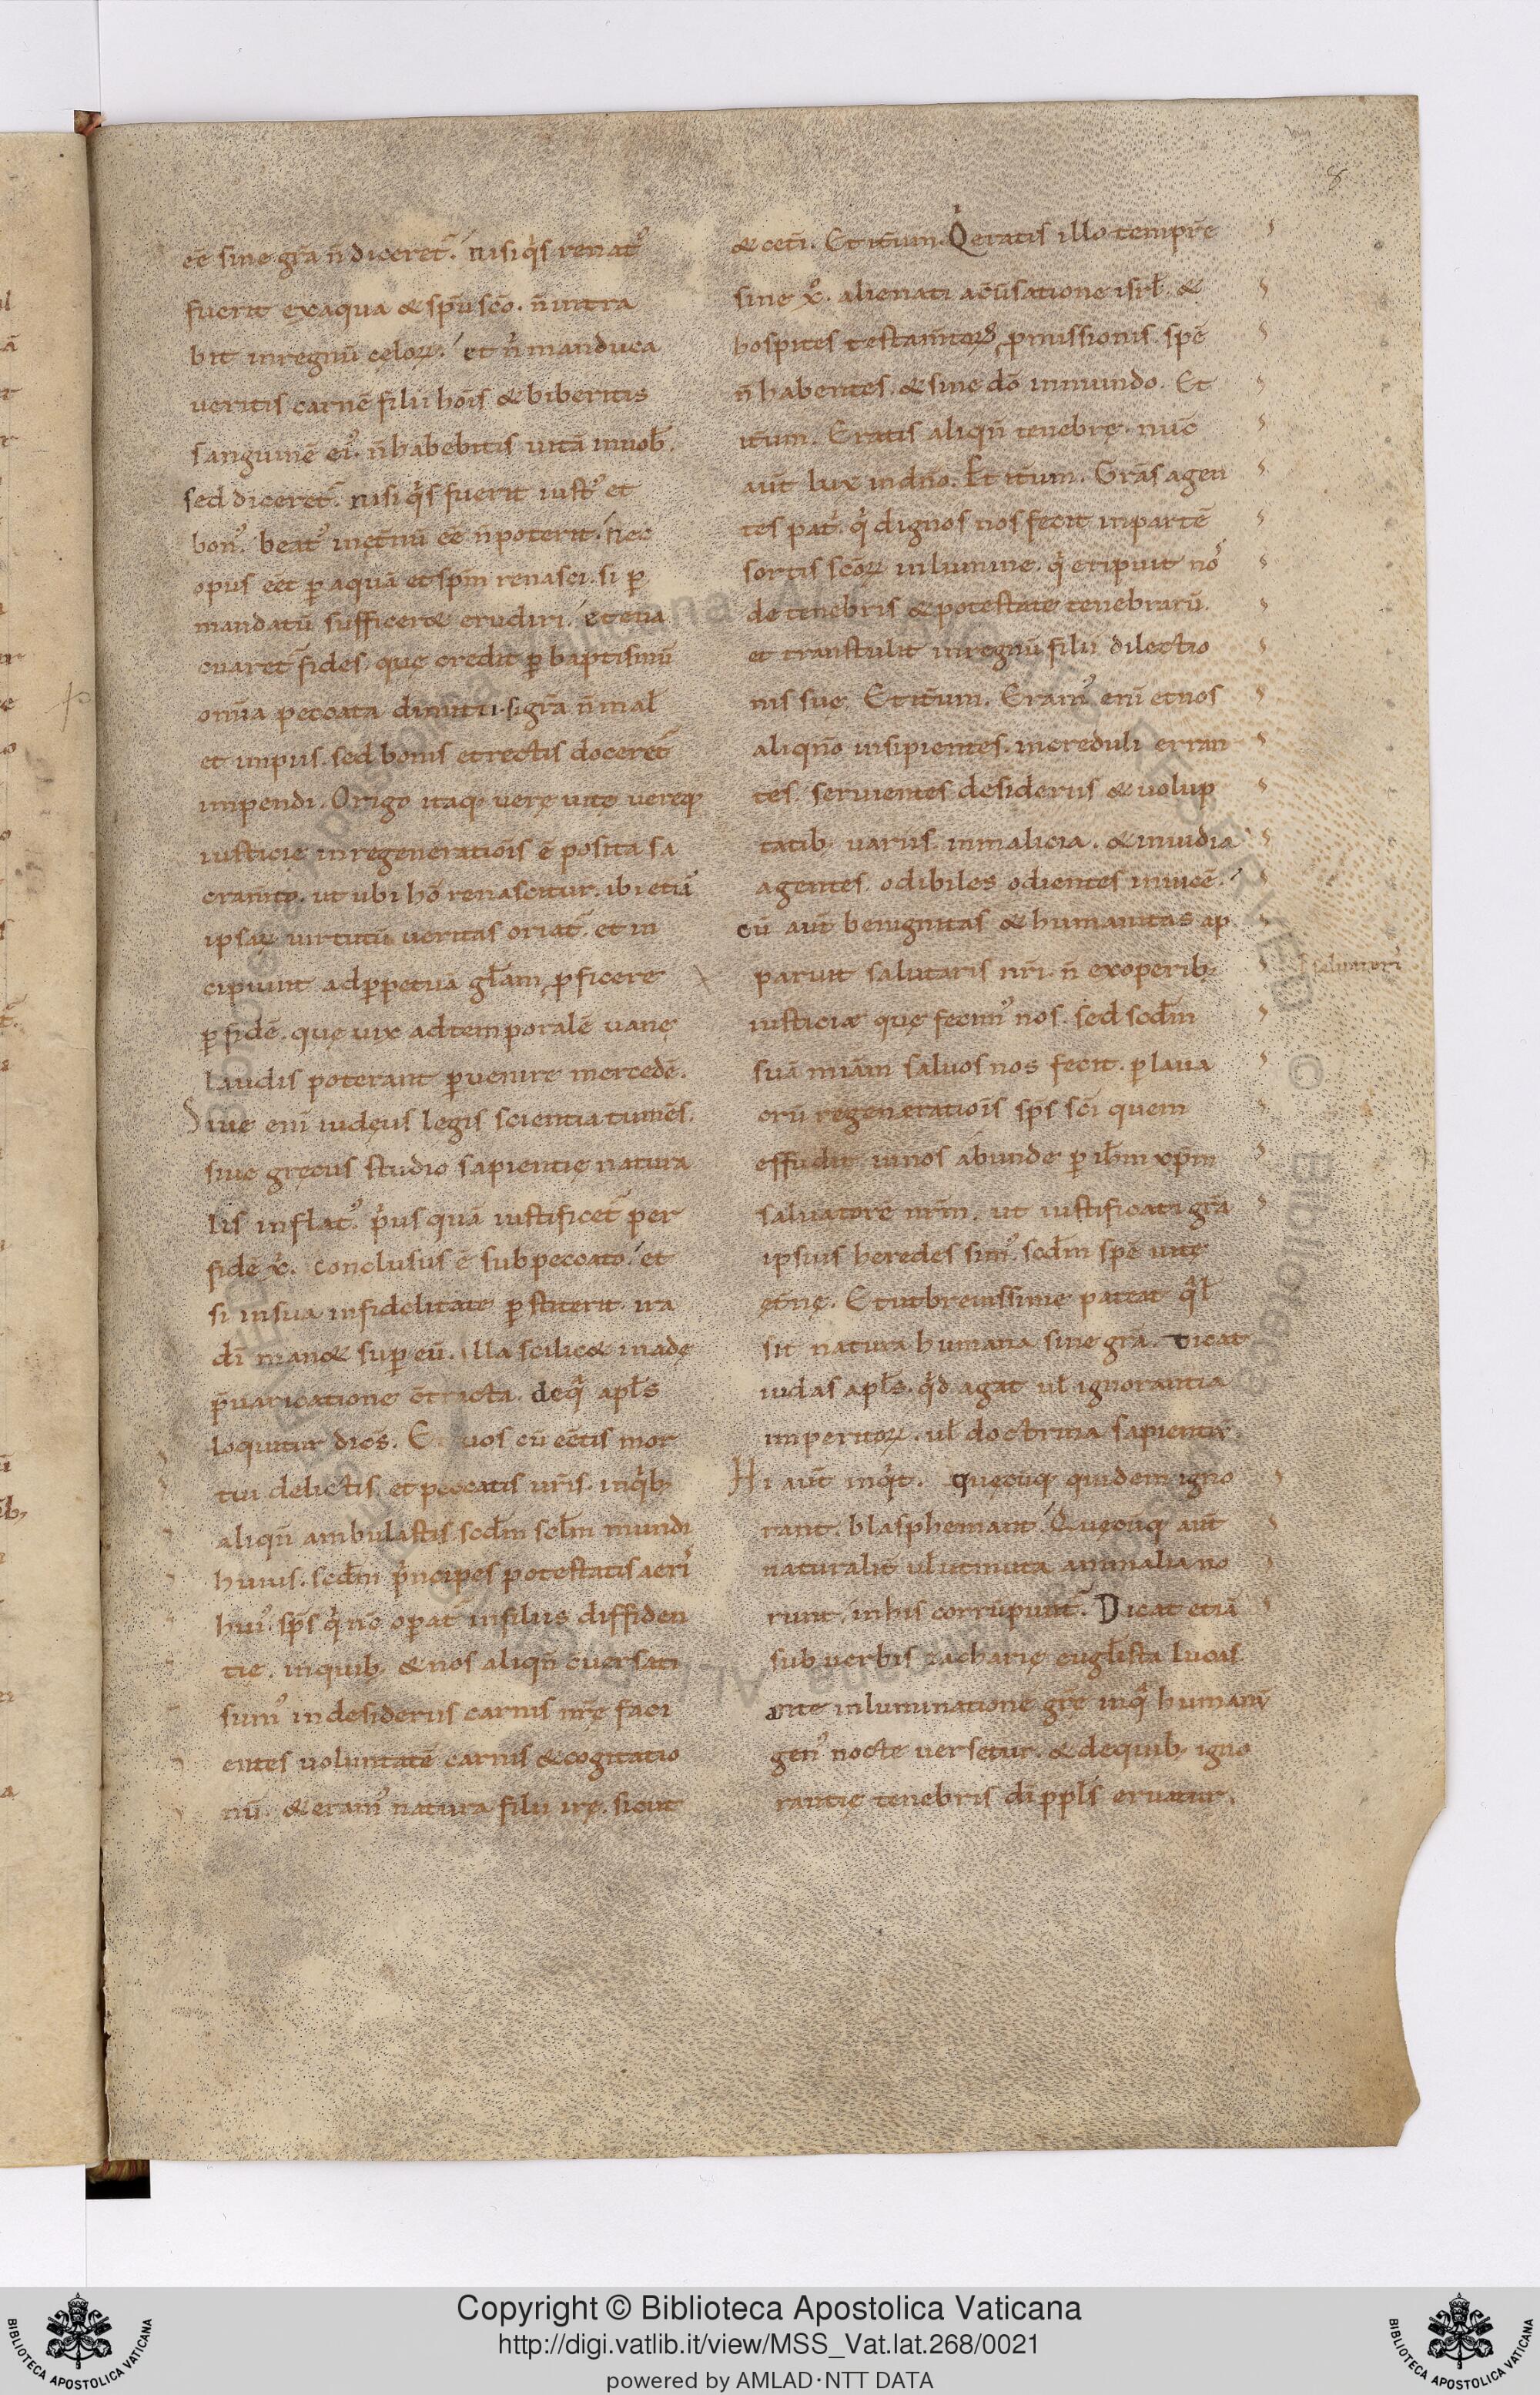 8
eē sine gr̄a n̄ diceret᷑. nisi qͥs renatꝰ
fuerit ex aqua & sp̄u sc̄o. n̄ intra
bit in regnū celoꝝ. et nͥ manduca
veritis carnē filii hōis & biberitis
sanguinē eiꝰ. n̄ habebitis uitā in uob̄.
sed diceret᷑. nisi qͥs fuerit iustꝰ et
bonꝰ. beatꝰ inęt̄nū eē n̄ poterit. nec
opus eēt ꝑ aquā et sp̄m renasci. si ꝑ
mandatū sufficeret erudiri. et eua
cuaret᷑ fides. quę credit ꝑ baptismū
om̄a peccata dimitti. si gr̄a n̄ mal̄
et impiis. sed bonis et rectis doceret᷑
impendi. Origo itaq; verę uitę vereq;
iusticie in regeneratiōis ē posita sa
cram̄to. ut ubi hō renascitur. ibi etiā
ipsaꝝ uirtutū ueritas oriat᷑. et in
cipiunt ad ꝑpetuā gl̄am ꝓficere
ꝑ fidē. quę uix ad temporalē uanę
laudis poterant ꝑuenire mercedē.
Siue enī iudęus legis scientia tumēs.
siue grecus studio sapientię natura
lis inflatꝰ. pͥus quā iustificet᷑ per
fidē xͥ. conclusus ē sub peccato. et
si in sua infidelitate ꝑstiterit. ira
dī manet suꝑ eū. illa scilicet in adę
p̄uaricatione ōtracta. de qͣ apl̄s
loquitur dicēs. Et uos cū eētis mor
tui delictis. et peccatis ur̄is. in qͥb;
aliqn̄ ambulastis. scd̄m scl̄m mundi
huius. scd̄m pͥncipes potestatis aeriͥ
huiꝰ. sp̄s qͥ nc̄ oꝑat᷑ in filiis diffiden
tie. in quib; & nos aliqn̄ ↄuersati
sumꝰ in desideriis carnis nr̄ę faci
entes uoluntatē carnis & cogitatio
nū. & eramꝰ natura filii irę. sicut
& cet̄i. Et it̄um. Qͥ eratis illo tempr̄e
sine xͦ. alienati a ↄū̄satione isrl̄. &
hospites testam̄toꝝ ꝓmissionis. spē
n̄ habentes. & sine dō in mundo. Et
it̄um. Eratis aliqn̄ tenebrę. nūc
aut̄ lux in dn̄o. Et it̄um. Gr̄as agen
tes pat̄. qͥ dignos nos fecit in partē
sortis sc̄oꝝ in lumine. qͥ eripuit noͥ
de tenebris & potestate tenebrarū.
et transtulit in regnū filii dilectio
nis suę. Et it̄um. Eramꝰ enī et nos
aliqn̄o insipientes. increduli erran
tes. seruientes desideriis & uolup
tatib; uariis. in malicia. & inuidia
agentes. odibiles odientes inuicē.
cū aut̄ benignitas & humanitas ap
paruit salutaris nr̄i. n̄ ex operib;
salvatoriͥ
iusticiæ que fecimꝰ nos. sed scd̄m
suā mīam saluos nos fecit. ꝑ laua
crū regeneratiōis sp̄s sc̄i quem
effudit in nos abunde ꝑ ih̄m xp̄m
saluatorē nr̄m. ut iustificati gr̄a
ipsius heredes simꝰ. scd̄m spē uitę
ęt̄nę. Et ut breuissime pateat qͣl̄
sit natura humana sine gr̄a. dicat
iudas apl̄s. qͥd agat ul̄ ignorantia
imperitoꝝ. ul̄ doctrina sapientiꝝ.
Hi aut̄ inqͥt. Quecūq; quidem igno
rant. blasphemant. Quecūq; aut̄
naturalit̄ ul̄ut muta animalia no
runt. in his corrūpunt᷑. Dicat etiā
sub uerbis zacharię eugl̄ista lucas
ante inluminationē gr̄ę in qͣ humanū
genꝰ nocte versetur. & de quib; igno
rantię tenebris dī ppl̄s eruatur.
Copyright © Biblioteca Apostolica Vaticana
http://digi.vatlib.it/view/MSS_Vat.lat.268/0021
powered by AMLAD·NTT DATA
BIBLIOTECA APOSTOLICA VATICANA
BIBLIOTECA APOSTOLICA VATICANA